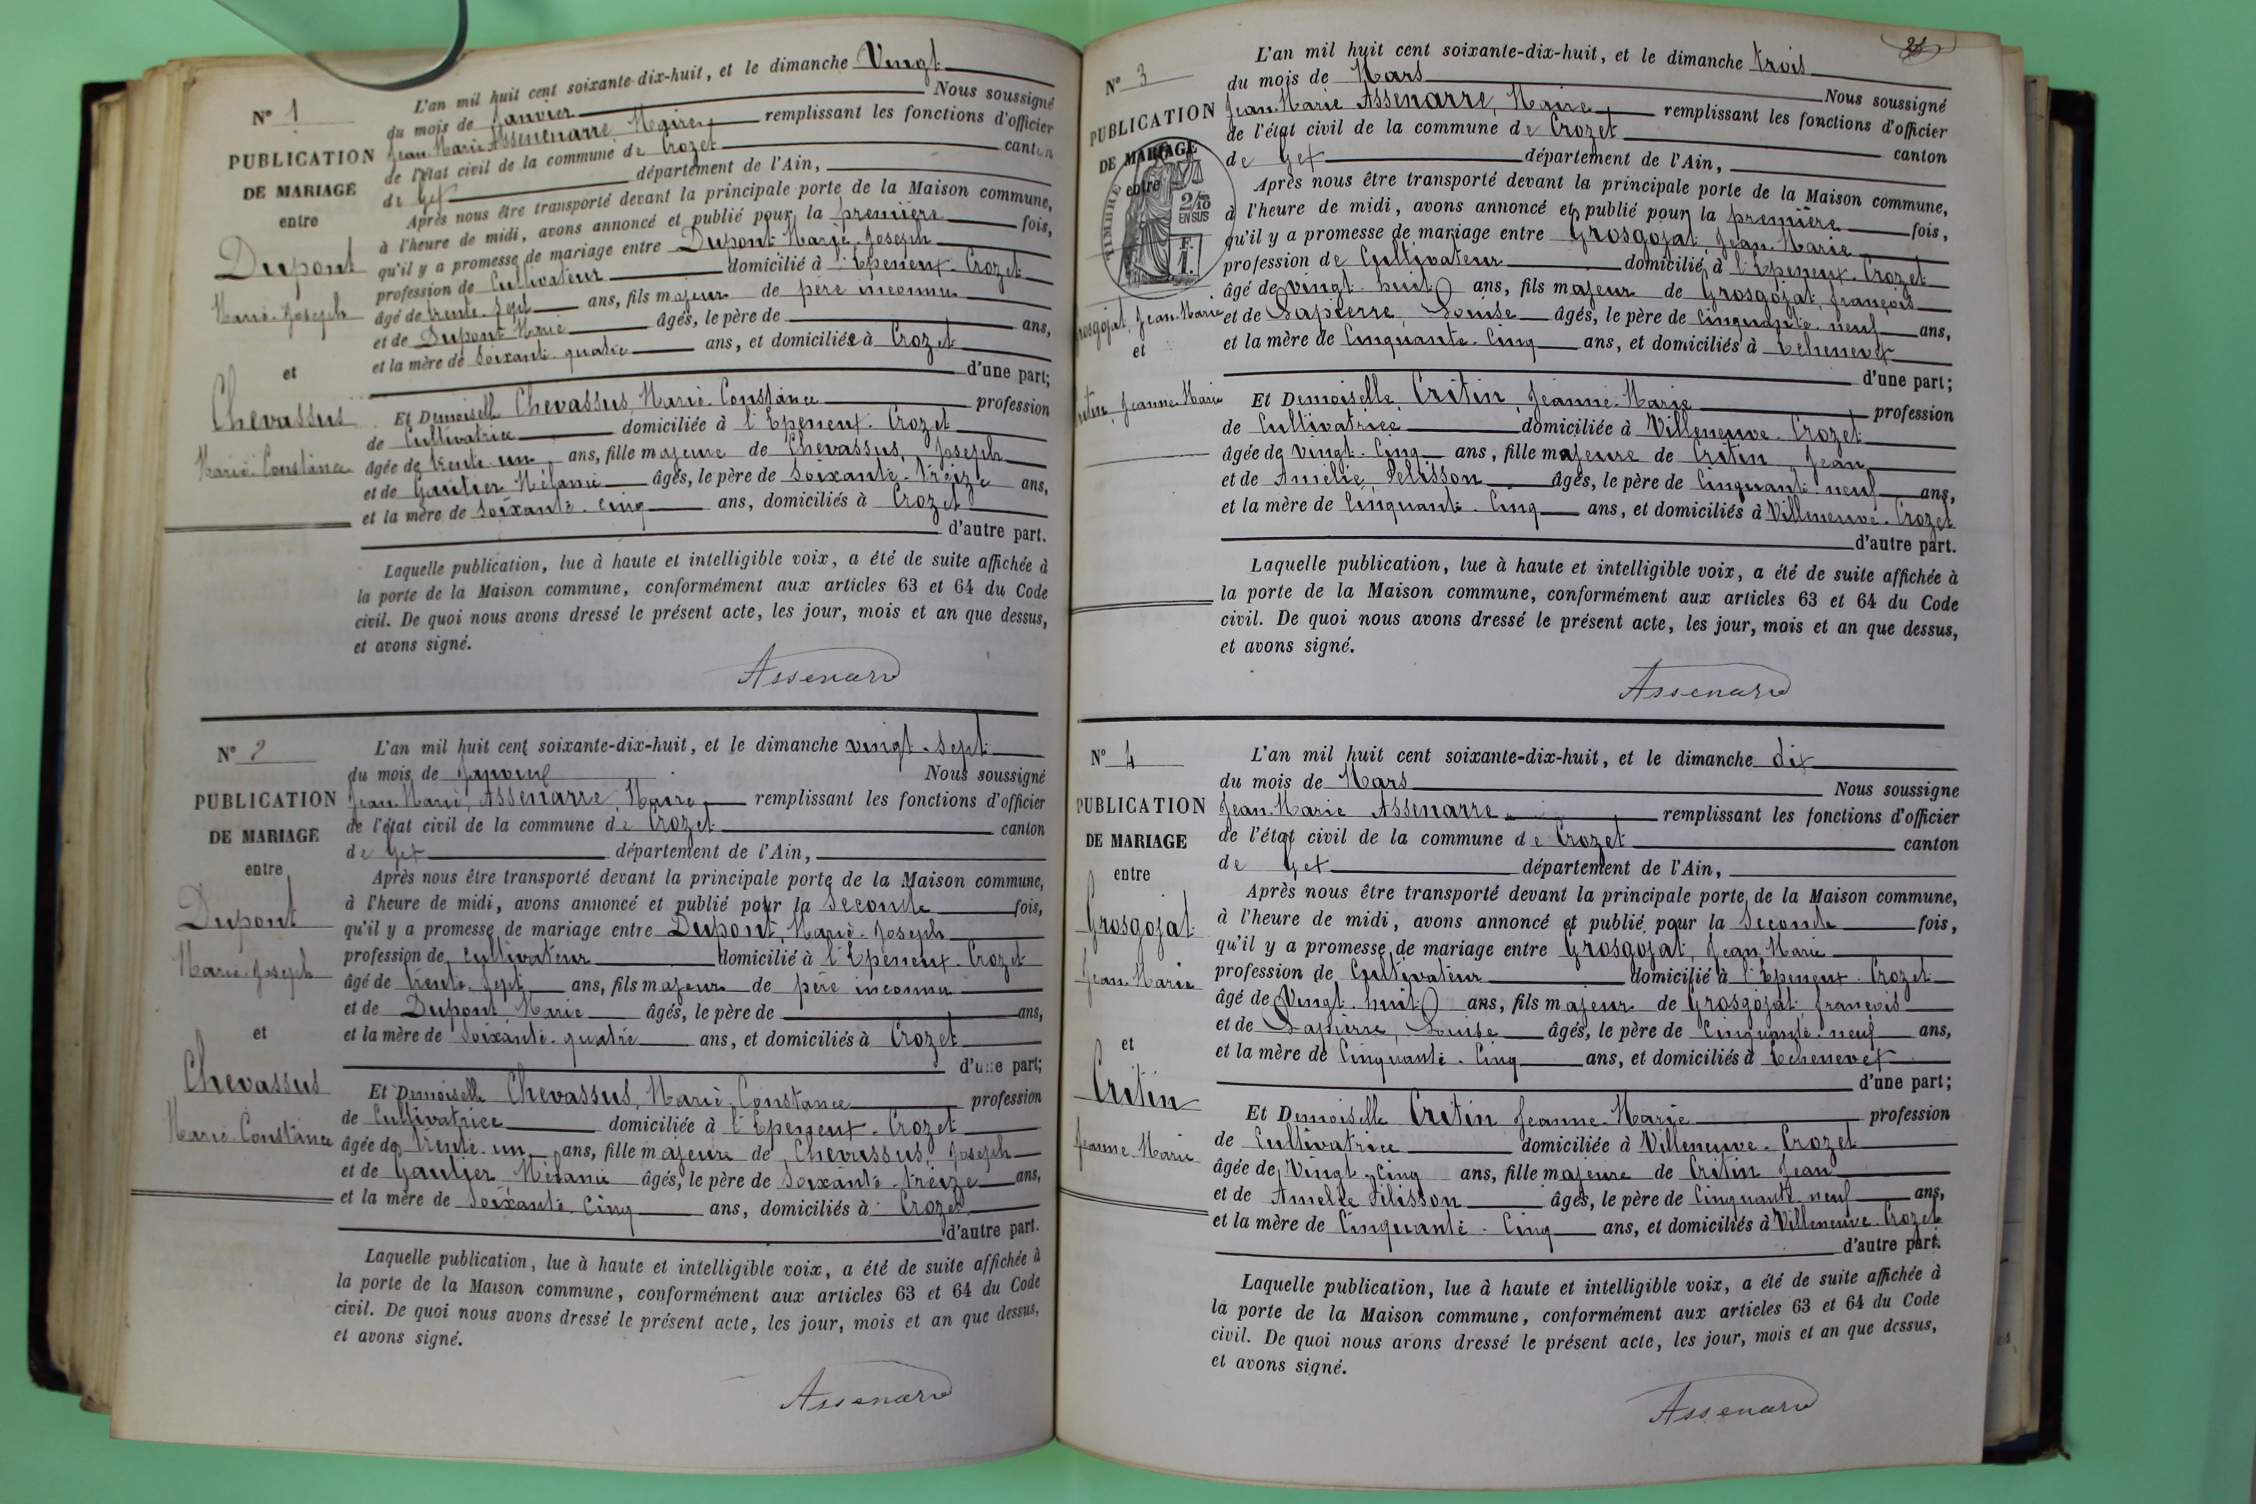 N° 1
PUBLICATION
DE MARIAGE
entre
Dupont
Marie-Joseph
et
Chevassus
Marie-Constance
L'an mil huit cent soixante-dix-huit, et le dimanche Vingt
du mois de Janvier Nous soussigné
Jean-Marie Assenenarre, Maire, remplissant les fonctions d'officier
de l'état civil de la commune de Crozet canton
de Gex département de l'Ain,
Après nous être transporté devant la principale porte de la Maison commune,
à l'heure de midi, avons annoncé et publié pour la première fois,
qu'il y a promesse de mariage entre Dupont Marie-Joseph
profession de Cultivateur domicilié à l'Epeneux-Crozet
âgé de trente-sept ans, fils majeur de père inconnu
et de Dupont Marie âgés, le père de ans,
et la mère de soixante-quatre ans, et domiciliés à Crozet
d'une part;
Et Demoiselle Chevassus, Marie-Constance profession
de Cultivatrice domiciliée à l'Epeneux-Crozet
âgée de trente-un ans, fille majeure de Chevassus, Joseph
et de Gautier Mélanie âgés, le père de Soixante-treize ans,
et la mère de Soixante-cinq ans, domiciliés à Crozet
d'autre part.
Laquelle publication, lue à haute et intelligible voix, a été de suite affichée à
la porte de la Maison commune, conformément aux articles 63 et 64 du Code
civil. De quoi nous avons dressé le présent acte, les jour, mois et an que dessus,
et avons signé.
Assenard
N° 2
PUBLICATION
DE MARIAGE
entre
Dupont
Marie-Joseph
et
Chevassus
Marie-Constance
L'an mil huit cent soixante-dix-huit, et le dimanche vingt-sept
du mois de Janvier Nous soussigné
Jean-Marie, Assenarre, Maire, remplissant les fonctions d'officier
de l'état civil de la commune de Crozet canton
de Gex département de l'Ain,
Après nous être transporté devant la principale porte de la Maison commune,
à l'heure de midi, avons annoncé et publié pour la Seconde fois,
qu'il y a promesse de mariage entre Dupont, Marie-Joseph
profession de cultivateur domicilié à l'Epeneux-Crozet
âgé de trente-sept ans, fils majeur de père inconnu
et de Dupont Marie âgés, le père de ans,
et la mère de soixante-quatre ans, et domiciliés à Crozet
d'une part;
Et Demoiselle Chevassus, Marie-Constance profession
de Cultivatrice domiciliée à l'Epeneux-Crozet
âgée de trente-un ans, fille majeure de Chevassus, Joseph
et de Gautier Mélanie âgés, le père de soixante-treize ans,
et la mère de Soixante-Cinq ans, domiciliés à Crozet
d'autre part.
Laquelle publication, lue à haute et intelligible voix, a été de suite affichée à
la porte de la Maison commune, conformément aux articles 63 et 64 du Code
civil. De quoi nous avons dressé le présent acte, les jour, mois et an que dessus,
et avons signé.
Assenard
N° 3
PUBLICATION
DE MARIAGE
entre
TIMBRE
2/10
EN SUS
F.
1.
rosgojat, Jean-Marie
et
Jeanne-Marie
L'an mil huit cent soixante-dix-huit, et le dimanche trois
du mois de Mars Nous soussigné
Jean-Marie Assenarre, Maire, remplissant les fonctions d'officier
de l'état civil de la commune de Crozet canton
de Gex département de l'Ain,
Après nous être transporté devant la principale porte de la Maison commune,
à l'heure de midi, avons annoncé et publié pour la première fois,
qu'il y a promesse de mariage entre Grosgojat, Jean-Marie
profession de Cultivateur domicilié à l'Epeneux-Crozet
âgé de vingt-huit ans, fils majeur de Grosgojat, françois
et de Lapierre, Louise âgés, le père de cinquante-neuf ans,
et la mère de Cinquante-Cinq ans, et domiciliés à Echenevex
d'une part;
Et Demoiselle Critin, Jeanne-Marie profession
de Cultivatrice domiciliée à Villeneuve-Crozet
âgée de vingt-Cinq ans, fille majeure de Critin Jean
et de Amélie, Pelisson âgés, le père de Cinquante-neuf ans,
et la mère de Cinquante-Cinq ans, et domiciliés à Villeneuve-Crozet
d'autre part.
Laquelle publication, lue à haute et intelligible voix, a été de suite affichée à
la porte de la Maison commune, conformément aux articles 63 et 64 du Code
civil. De quoi nous avons dressé le présent acte, les jour, mois et an que dessus,
et avons signé.
Assenard
N° 4
PUBLICATION
DE MARIAGE
entre
Grosgojat
Jean-Marie
et
Critin
Jeanne-Marie
L'an mil huit cent soixante-dix-huit, et le dimanche dix
du mois de Mars Nous soussigné
Jean-Marie Assenarre remplissant les fonctions d'officier
de l'état civil de la commune de Crozet canton
de Gex département de l'Ain,
Après nous être transporté devant la principale porte de la Maison commune,
à l'heure de midi, avons annoncé et publié pour la Seconde fois,
qu'il y a promesse de mariage entre Grosgojat, Jean-Marie
profession de Cultivateur domicilié à l'Epeneux-Crozet
âgé de Vingt-huit ans, fils majeur de Grosgojat, françois
et de Lapierre, Louise âgés, le père de Cinquante-neuf ans,
et la mère de Cinquante-Cinq ans, et domiciliés à Echenevex
d'une part;
Et Demoiselle Critin Jeanne-Marie profession
de Cultivatrice domiciliée à Villeneuve-Crozet
âgée de Vingt-Cinq ans, fille majeure de Critin Jean
et de Amélie Pilisson âgés, le père de Cinquante-neuf ans,
et la mère de Cinquante-Cinq ans, et domiciliés à Villeneuve-Crozet
d'autre part.
Laquelle publication, lue à haute et intelligible voix, a été de suite affichée à
la porte de la Maison commune, conformément aux articles 63 et 64 du Code
civil. De quoi nous avons dressé le présent acte, les jour, mois et an que dessus,
et avons signé.
Assenard